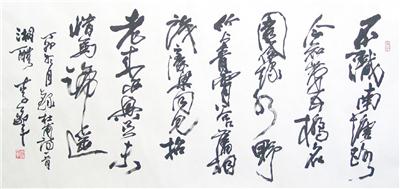 不識南塘路
今知第五橋名
園依綠水野
竹上青霄谷口舊相
得濠梁同見招
幽興未
惜馬蹄遙
丁卯 月錄杜甫詩一首
湘醴 李